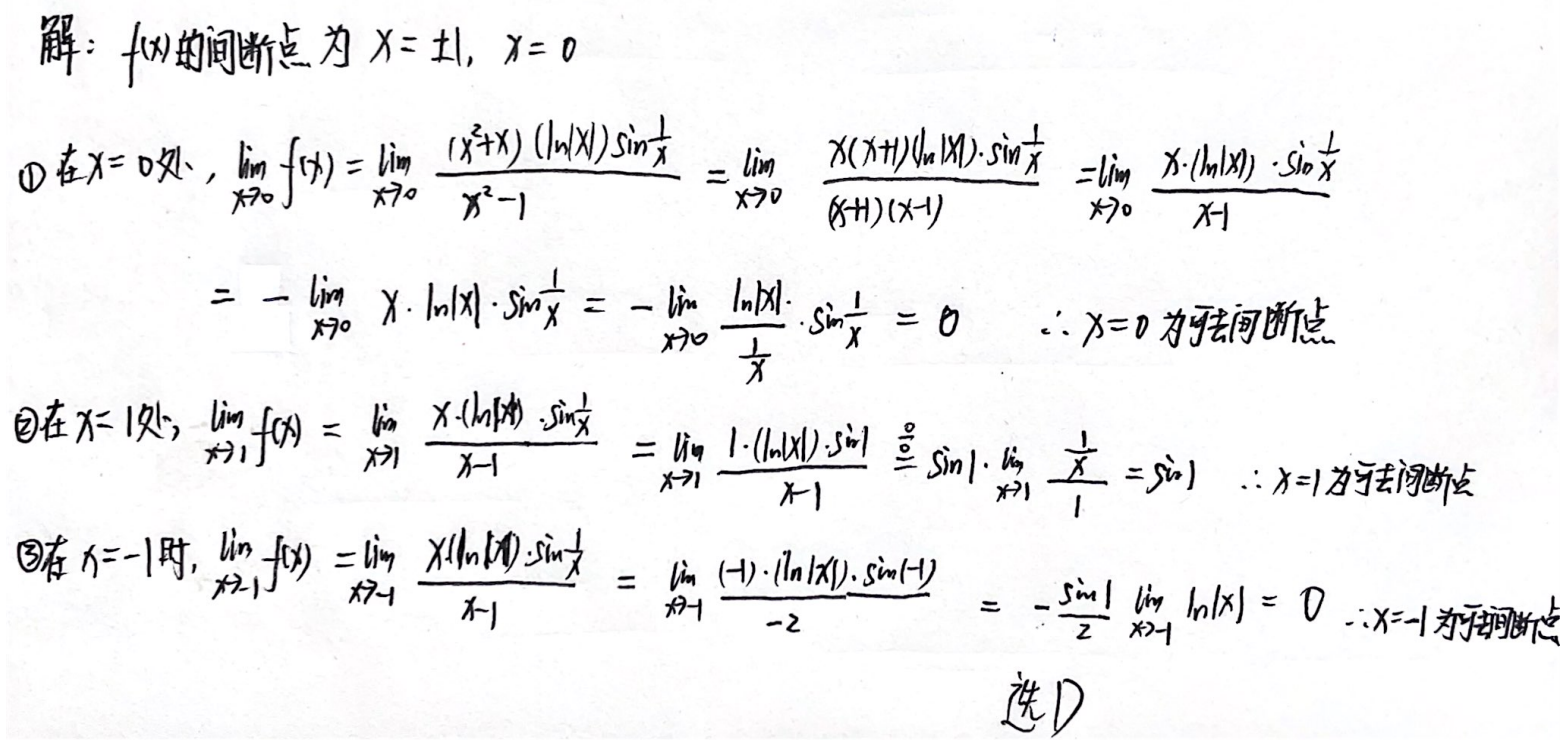 解: f(x)的间断点为 x = ±1, x = 0
① 在x=0处, lim_{x→0} f(x) = lim_{x→0} \frac{(x²+x)(ln|x|)sin\frac{1}{x}}{x²-1} = lim_{x→0} \frac{x(x+1)(ln|x|)·sin\frac{1}{x}}{(x+1)(x-1)} = lim_{x→0} \frac{x·(ln|x|)·sin\frac{1}{x}}{x-1}
= - lim_{x→0} x·ln|x|·sin\frac{1}{x} = - lim_{x→0} \frac{ln|x|·}{\frac{1}{x}}·sin\frac{1}{x} = 0 ∴ x=0 为可去间断点
②在x=1处, lim_{x→1} f(x) = lim_{x→1} \frac{x·(ln|x|)·sin\frac{1}{x}}{x-1} = lim_{x→1} \frac{1·(ln|x|)·sin1}{x-1} \overset{\frac{0}{0}}{=} sin1·lim_{x→1} \frac{\frac{1}{x}}{1} = sin1 ∴ x=1为可去间断点
③在x=-1时, lim_{x→-1} f(x) = lim_{x→-1} \frac{x·(ln|x|)·sin\frac{1}{x}}{x-1} = lim_{x→-1} \frac{(-1)·(ln|x|)·sin(-1)}{-2} = -\frac{sin1}{2} lim_{x→-1} ln|x| = 0 ∴x=-1为可去间断点
选D